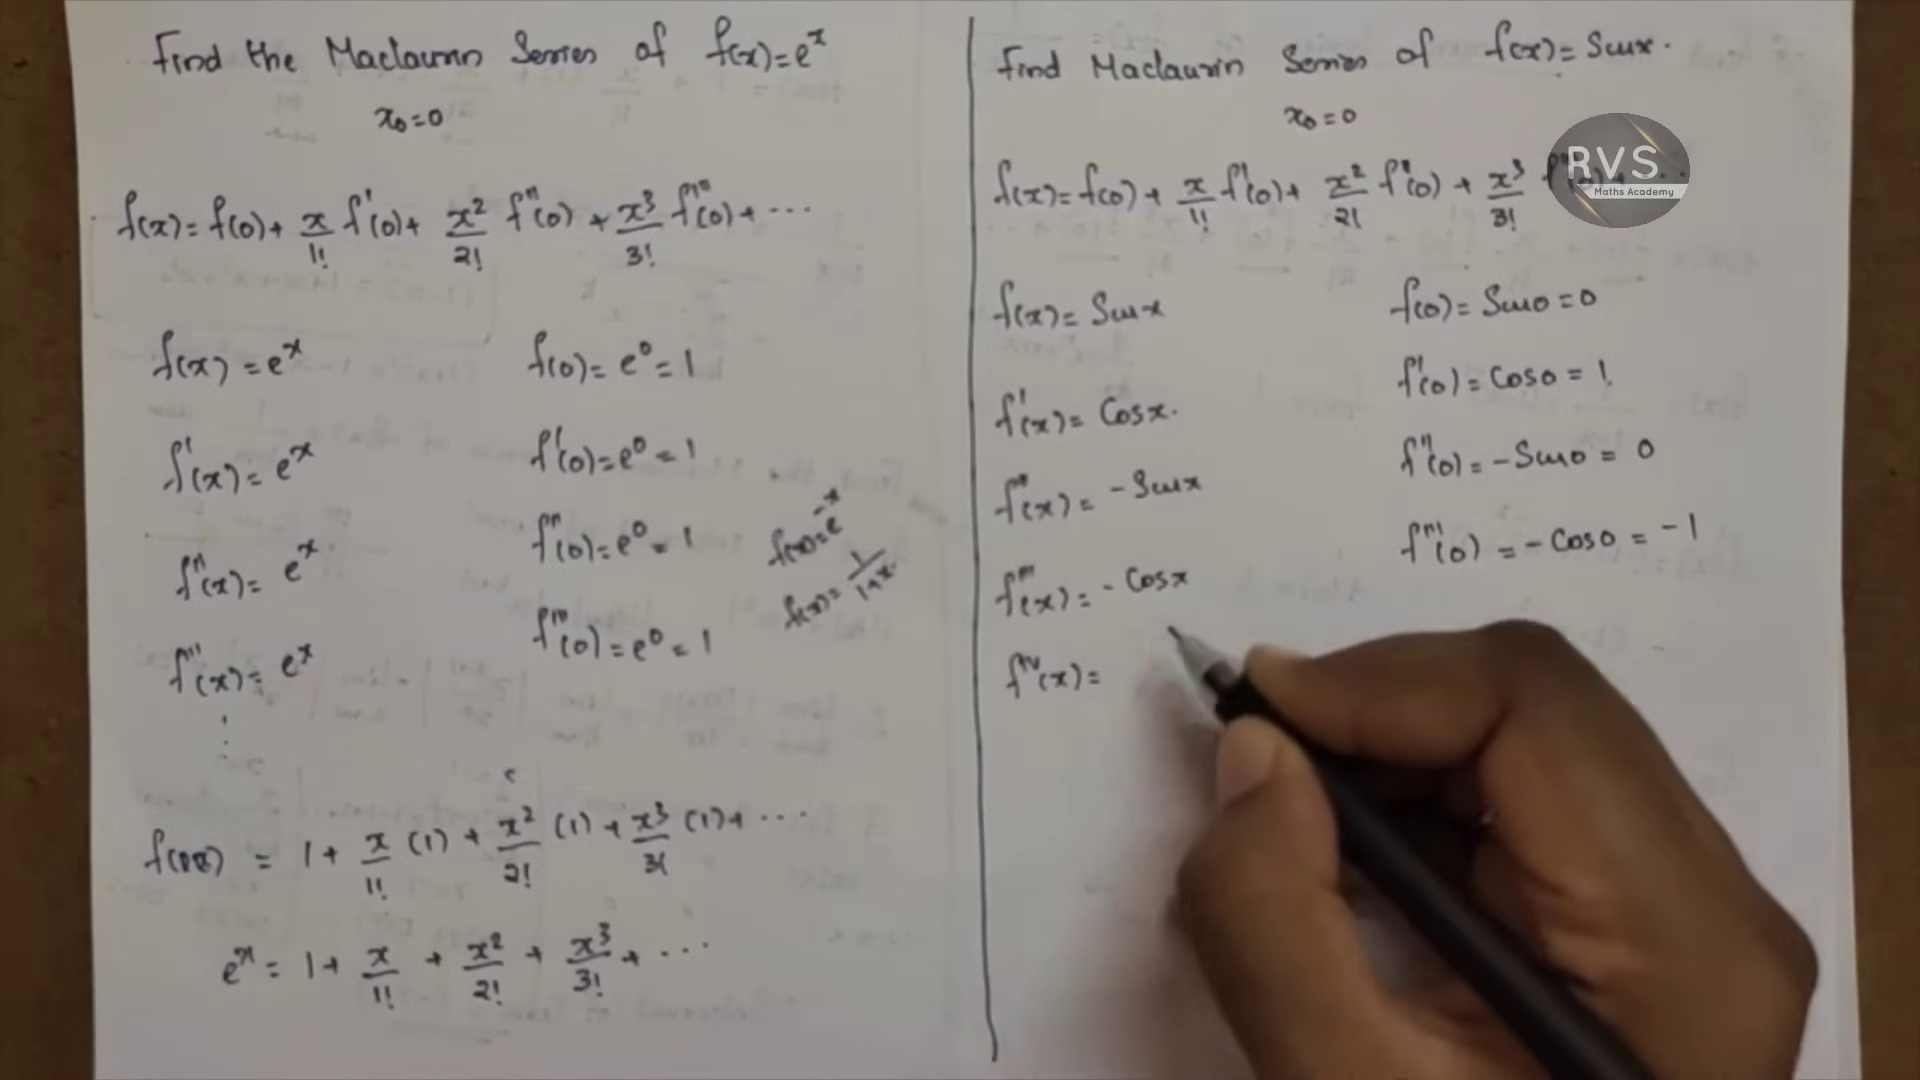 Find the Maclaurin Series of f(x)=eˣ
x₀=0
f(x)=f(0)+ x/1! f'(0)+ x²/2! f''(0) + x³/3! f'''(0)+ ...
f(x) = eˣ f(0)= e⁰= 1
f'(x)= eˣ f'(0)=e⁰ = 1
f''(x)= eˣ f''(0)=e⁰ = 1
f'''(x)= eˣ f'''(0)=e⁰ = 1
f(x)=e⁻ˣ
f(x)= 1/1+x.
= 1+ x/1! (1) + x²/2! (1)+ x³/3! (1)+ ...
eˣ= 1+ x/1! + x²/2! + x³/3! + ...
Find Maclaurin Series of f(x)= Sinx.
x₀=0
RVS
Maths Academy
f(x)=f(0)+ x/1! f'(0)+ x²/2! f''(0) + x³/3!
f(x)= Sinx f(0)= Sin0=0
f'(x)= Cosx. f'(0)= Cos0 = 1.
f''(x)= -Sinx f''(0)= -Sin0 = 0
f'''(x)= - Cosx f'''(0) = - Cos0 = -1
fᴵⱽ(x)=